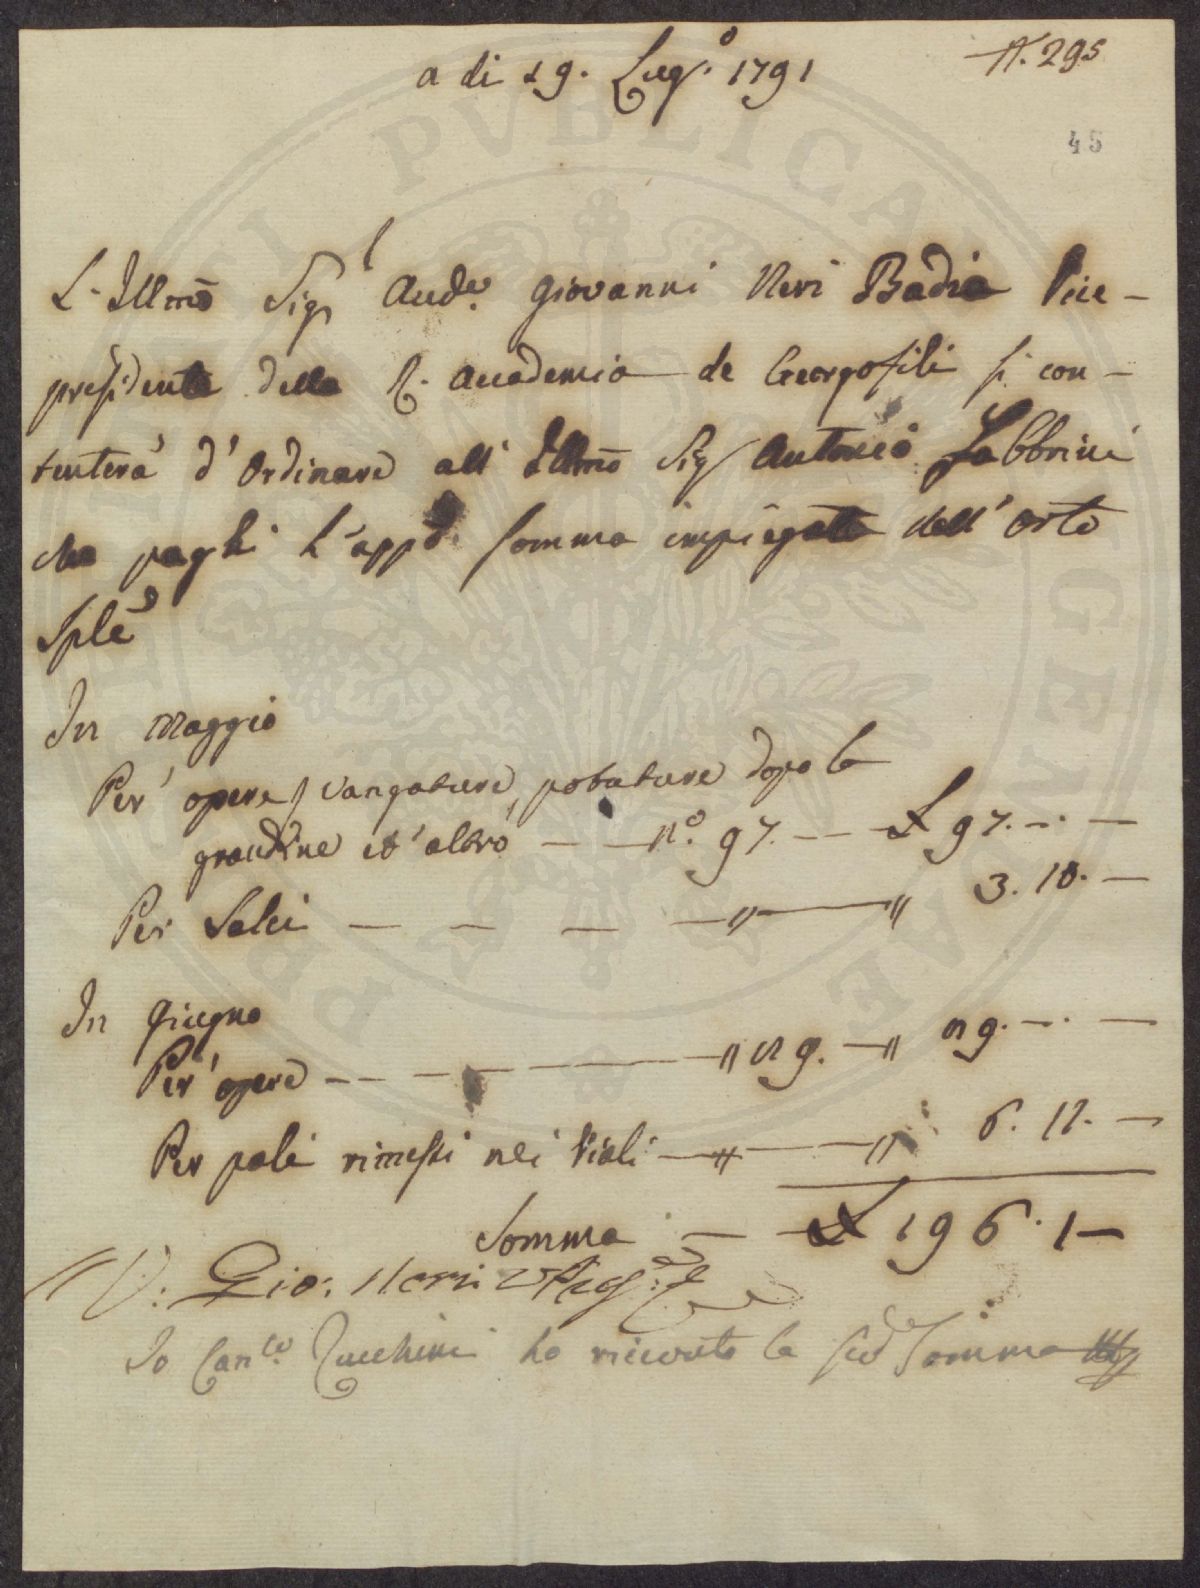 N. 295
a di 19. Lug.º 1791
45
L'Illmo Sig.r Aud.e Giovanni Neri Badia Vice-
presidente della R. Accademia de Georgofili si con-
tenterà d'Ordinare all' Illmo Sig.r Antonio Fabbrini
che paghi l'appª somma impiegata dell'Orto
Splê
In Maggio
Per opere, vangature, potature dopo la
grandine ed altro — — N.º 97. — — £ 97. — . —
Per Salci — — — — " — " 3. 10. —
In Giugno
Per opere — — — — " 89. — " 89. — . —
Per pali rimessi nei Viali — " — " 6. 11. —
Somma — — £ 196. 1 —
V: Gio: Neri VPres:e
Io Can.co Zucchini ho ricevuto la sud.ª Somma